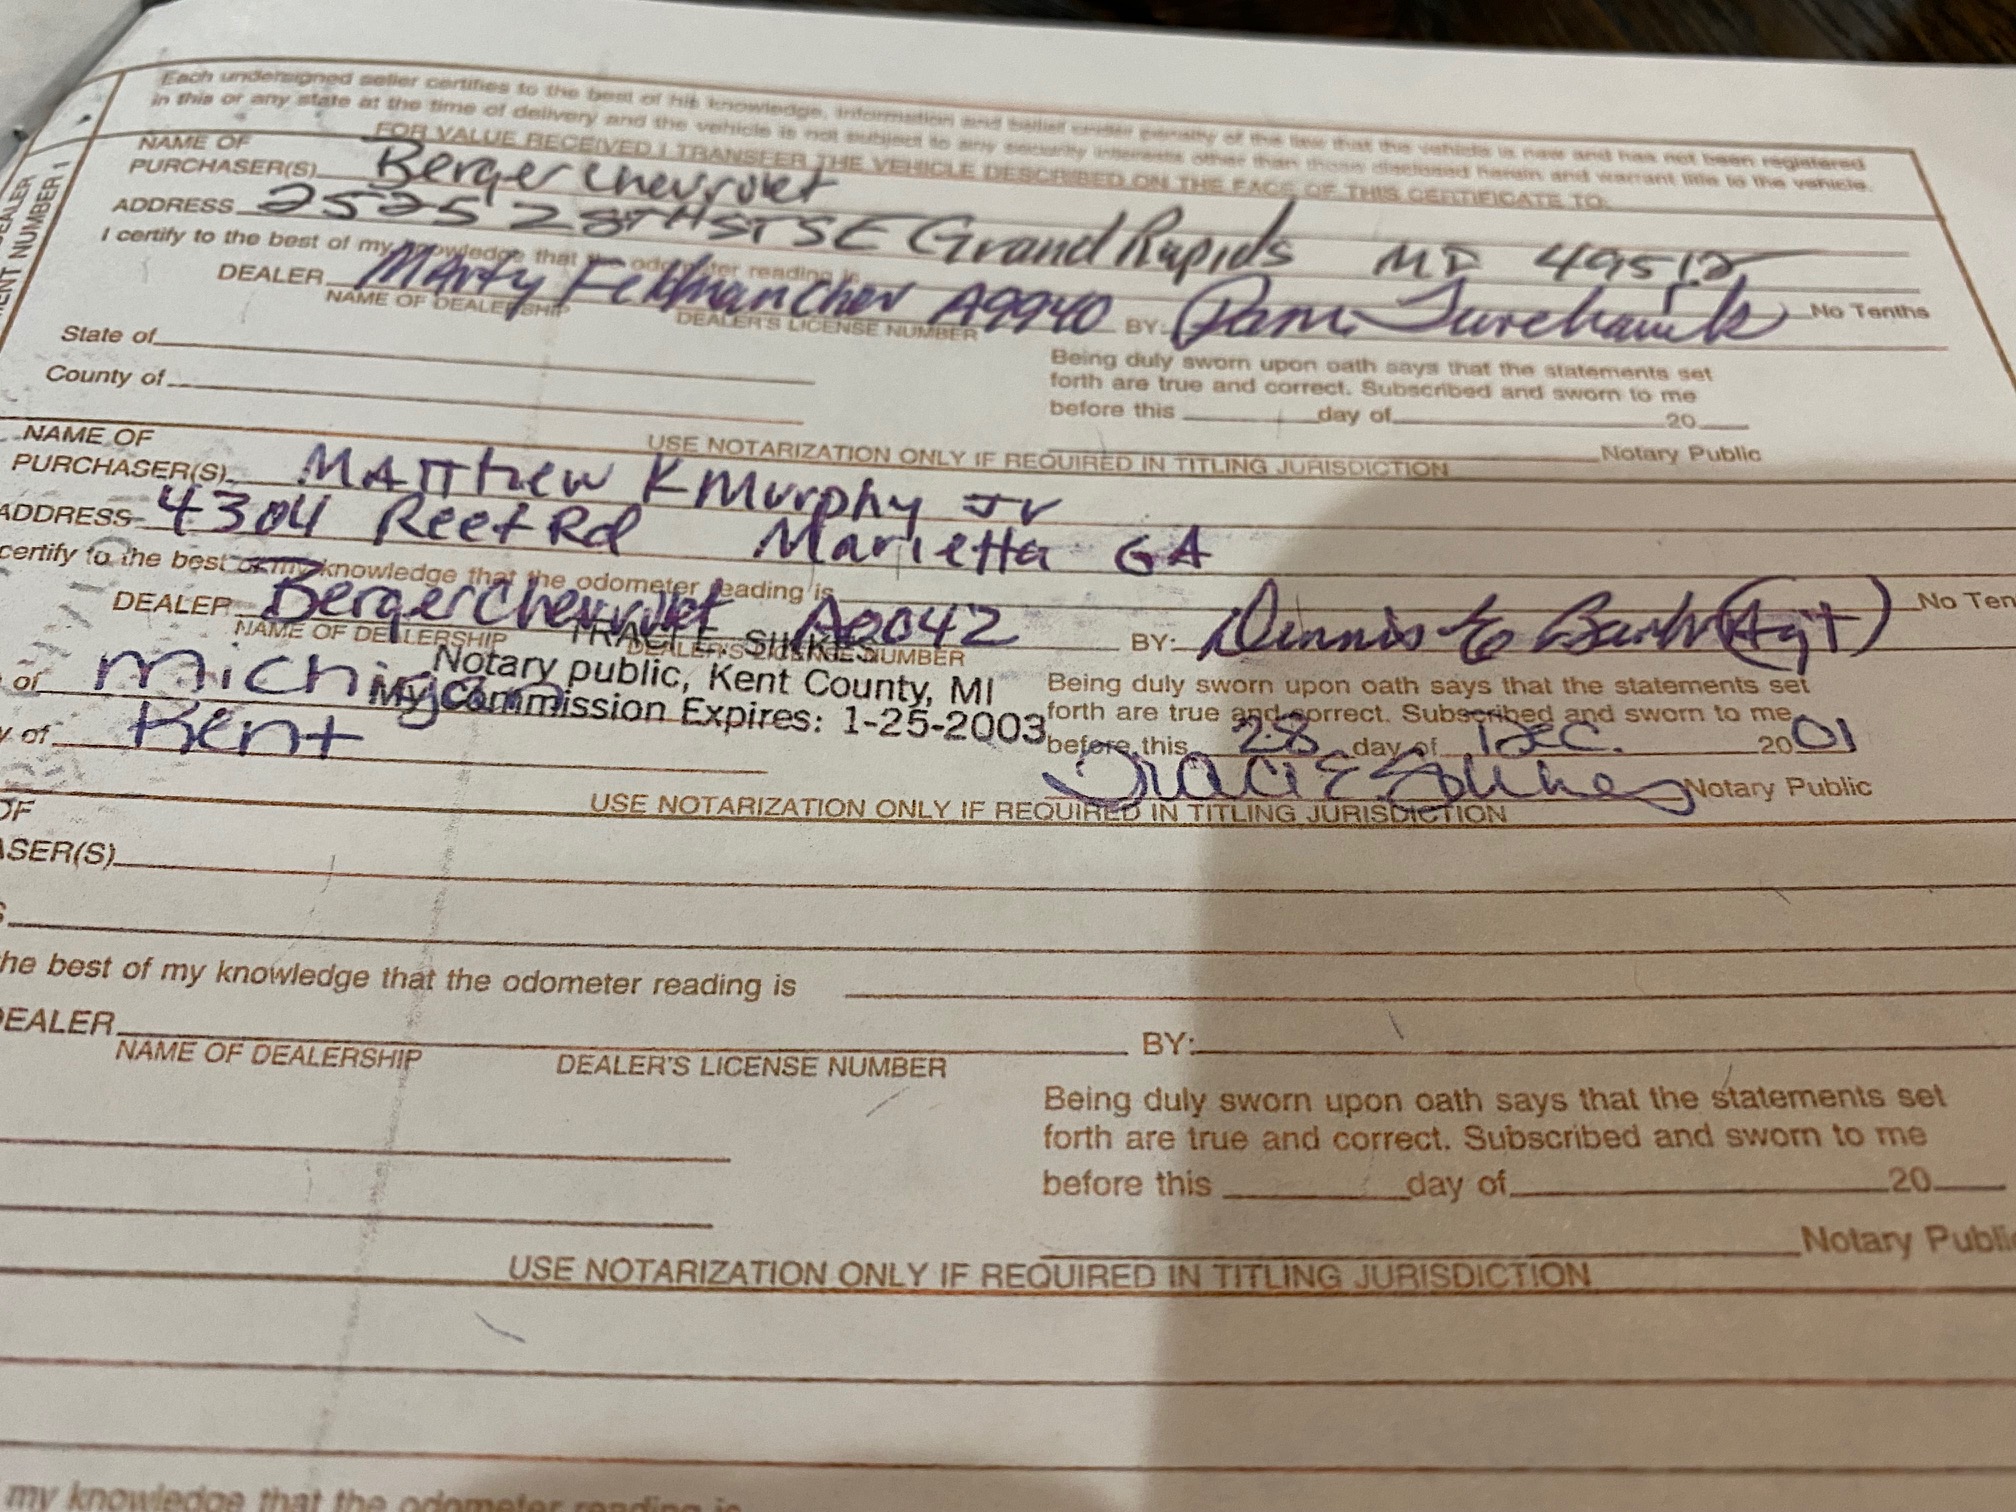 Each undersigned seller certifies to the best of his knowledge, information and belief under penalty of the law that the vehicle is new and has not been registered
in this or any state at the time of delivery and the vehicle is not subject to any security interests other than those disclosed herein and warrant title to the vehicle.
FOR VALUE RECEIVED I TRANSFER THE VEHICLE DESCRIBED ON THE FACE OF THIS CERTIFICATE TO:
DEALER
MENT NUMBER 1
NAME OF
PURCHASER(S) Berger Chevrolet
ADDRESS 2525 28TH ST SE Grand Rapids MI 49512
I certify to the best of my knowledge that the odometer reading is No Tenths
DEALER Marty Feldman Chev A9940 BY: Pam
NAME OF DEALERSHIP DEALER'S LICENSE NUMBER
State of
County of
Being duly sworn upon oath says that the statements set
forth are true and correct. Subscribed and sworn to me
before this day of 20
Notary Public
USE NOTARIZATION ONLY IF REQUIRED IN TITLING JURISDICTION
NAME OF
PURCHASER(S) Matthew K Murphy Jr
ADDRESS 4304 Reef Rd Marietta GA
certify to the best of my knowledge that the odometer reading is No Ten
DEALER Berger Chevrolet A0042 BY: Dennis (Agt)
NAME OF DEALERSHIP DEALER'S LICENSE NUMBER
TRACI E. SIKKES
Notary public, Kent County, MI
My Commission Expires: 1-25-2003
of Michigan
y of Kent
Being duly sworn upon oath says that the statements set
forth are true and correct. Subscribed and sworn to me
before this 28 day of DEC. 2001
Traci E Sikkes Notary Public
USE NOTARIZATION ONLY IF REQUIRED IN TITLING JURISDICTION
OF
ASER(S)
S
the best of my knowledge that the odometer reading is
DEALER BY:
NAME OF DEALERSHIP DEALER'S LICENSE NUMBER
Being duly sworn upon oath says that the statements set
forth are true and correct. Subscribed and sworn to me
before this day of 20
Notary Public
USE NOTARIZATION ONLY IF REQUIRED IN TITLING JURISDICTION
my knowledge that the odometer reading is